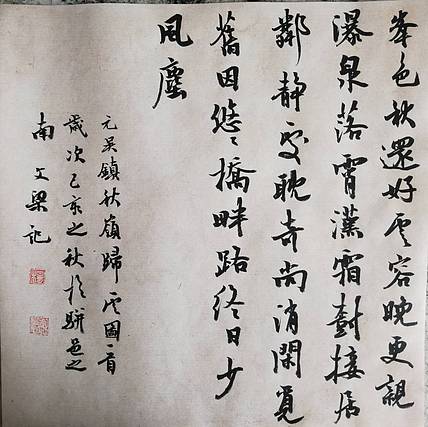 峯色秋還好雲容晚更親
瀑泉落霄漢霜樹接居
鄰靜處耽奇尚消閑覓
舊因悠々橋畔路終日少
風塵
元吳鎮秋嶺歸雲圖一首
歲次己亥之秋於駢邑之
南文梁記